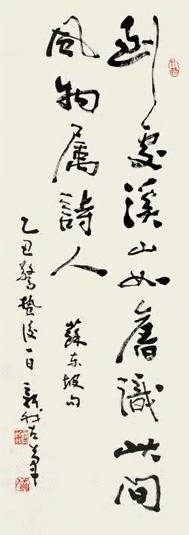 到處溪山如舊識此間
風物屬詩人
蘇东坡句
乙丑驚蟄後一日新我左筆